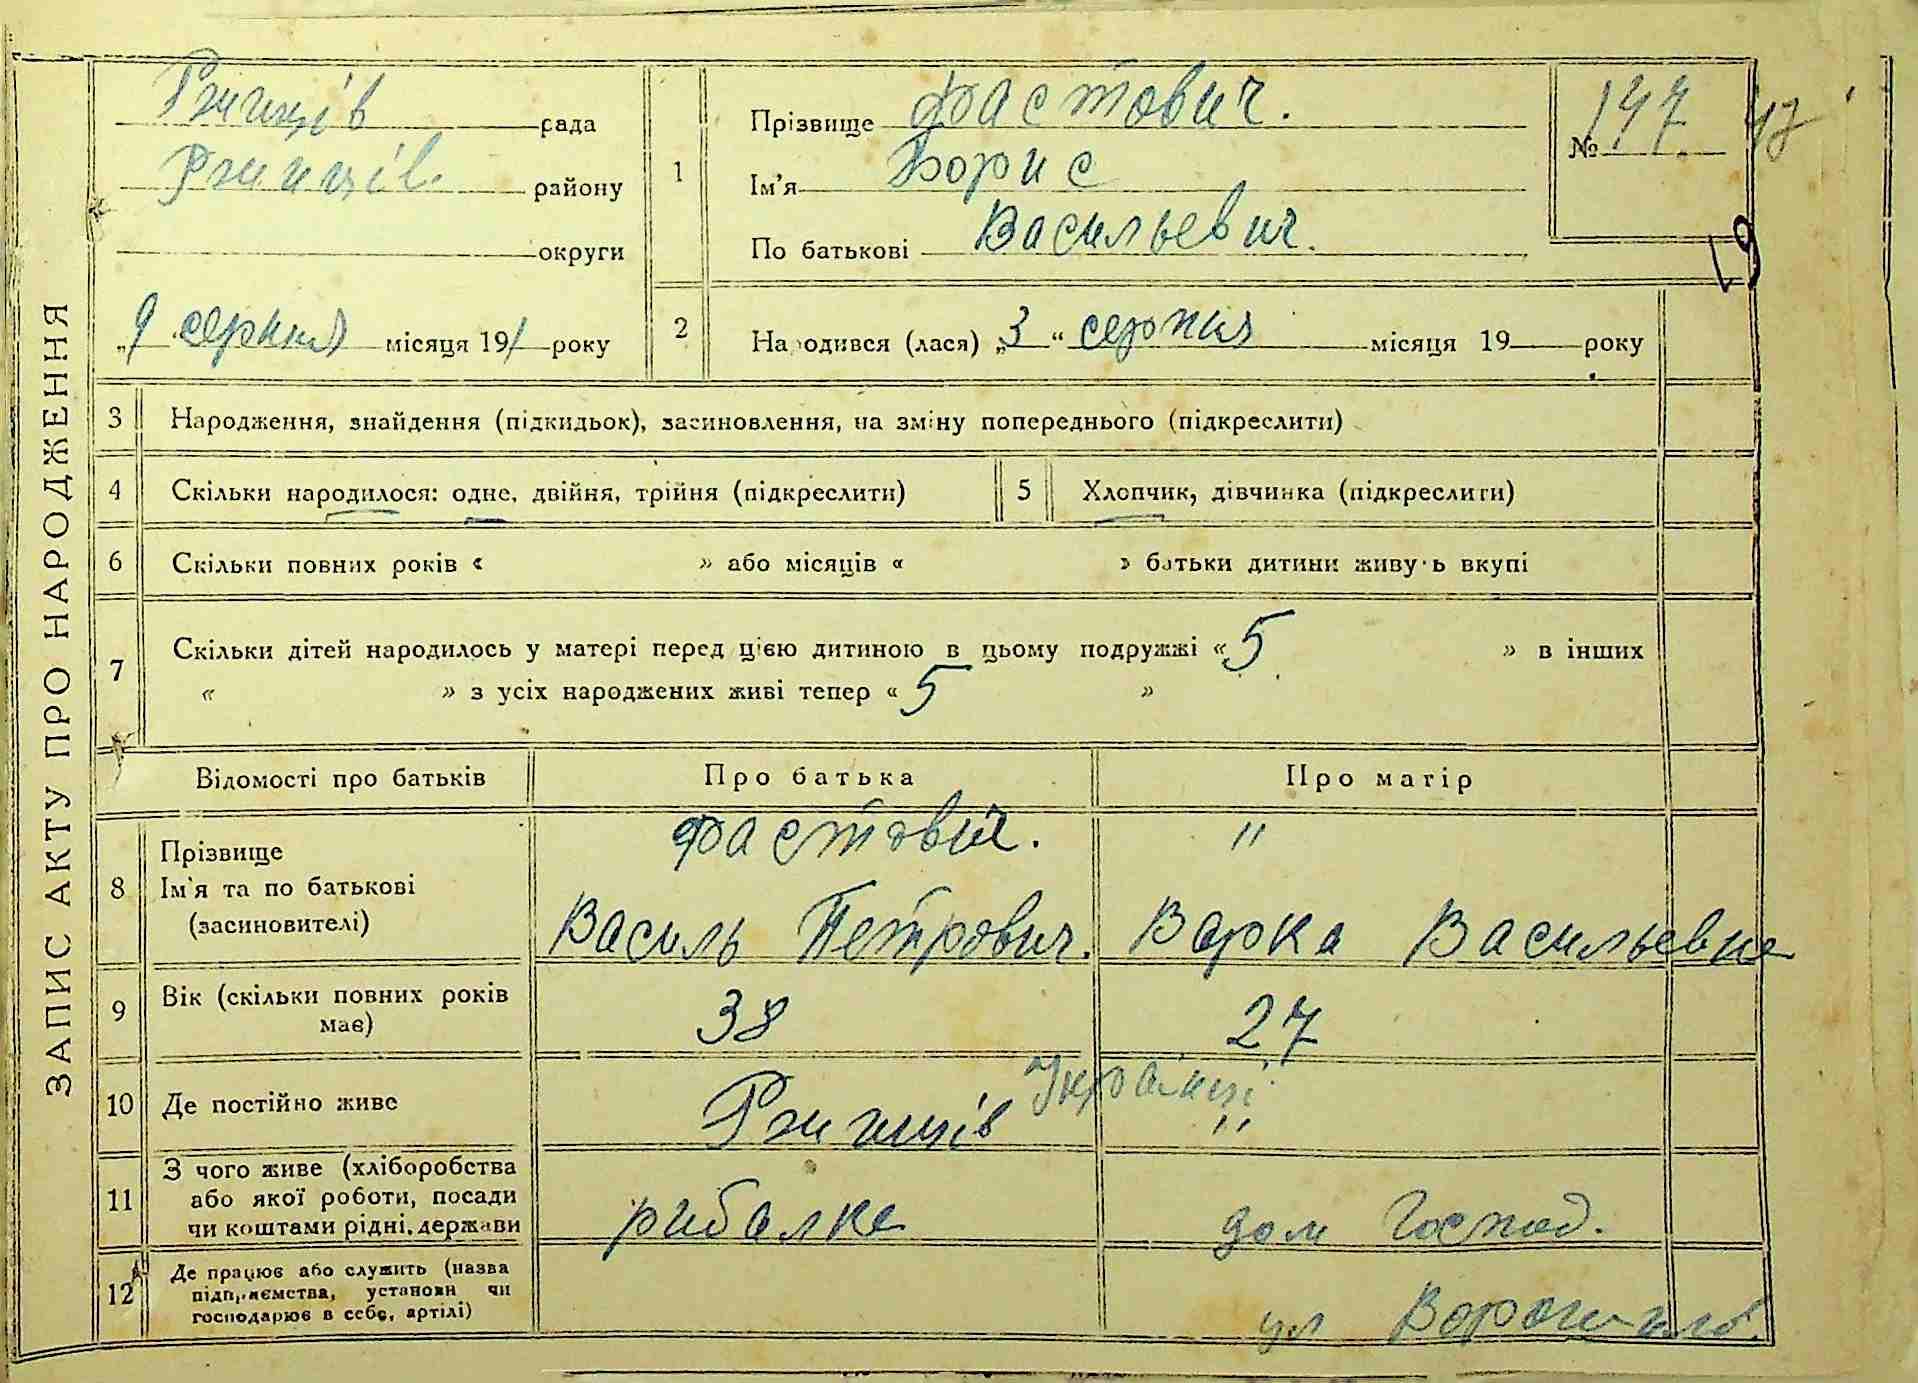 ЗАПИС АКТУ ПРО НАРОДЖЕННЯ
Ржищів рада
Ржищів. району
округи
„9 серпня місяця 191 року
1
Прізвище Фастович.
Ім'я Борис
По батькові Васильевич.
№ 147
19
2 Народився (лася) „3“ серпня місяця 19 року
3 Народження, знайдення (підкидьок), засиновлення, на зміну попереднього (підкреслити)
4 Скільки народилося: одне, двійня, трійня (підкреслити)
5 Хлопчик, дівчинка (підкреслити)
6 Скільки повних років « » або місяців « » батьки дитини живуть вкупі
7 Скільки дітей народилось у матері перед цією дитиною в цьому подружжі «5 » в інших
« » з усіх народжених живі тепер «5 »
Відомості про батьків Про батька Про матір
8 Прізвище
Ім'я та по батькові
(засиновителі)
Фастович. "
Василь Петрович. Варка Васильевна
9 Вік (скільки повних років
має)
38 27
Українці
10 Де постійно живе Ржищів "
11 З чого живе (хліборобства
або якої роботи, посади
чи коштами рідні, держави
рибалка дом Господ.
12 Де працює або служить (назва
підприємства, установи чи
господарює в себе, артілі)
ул Ворошилов.